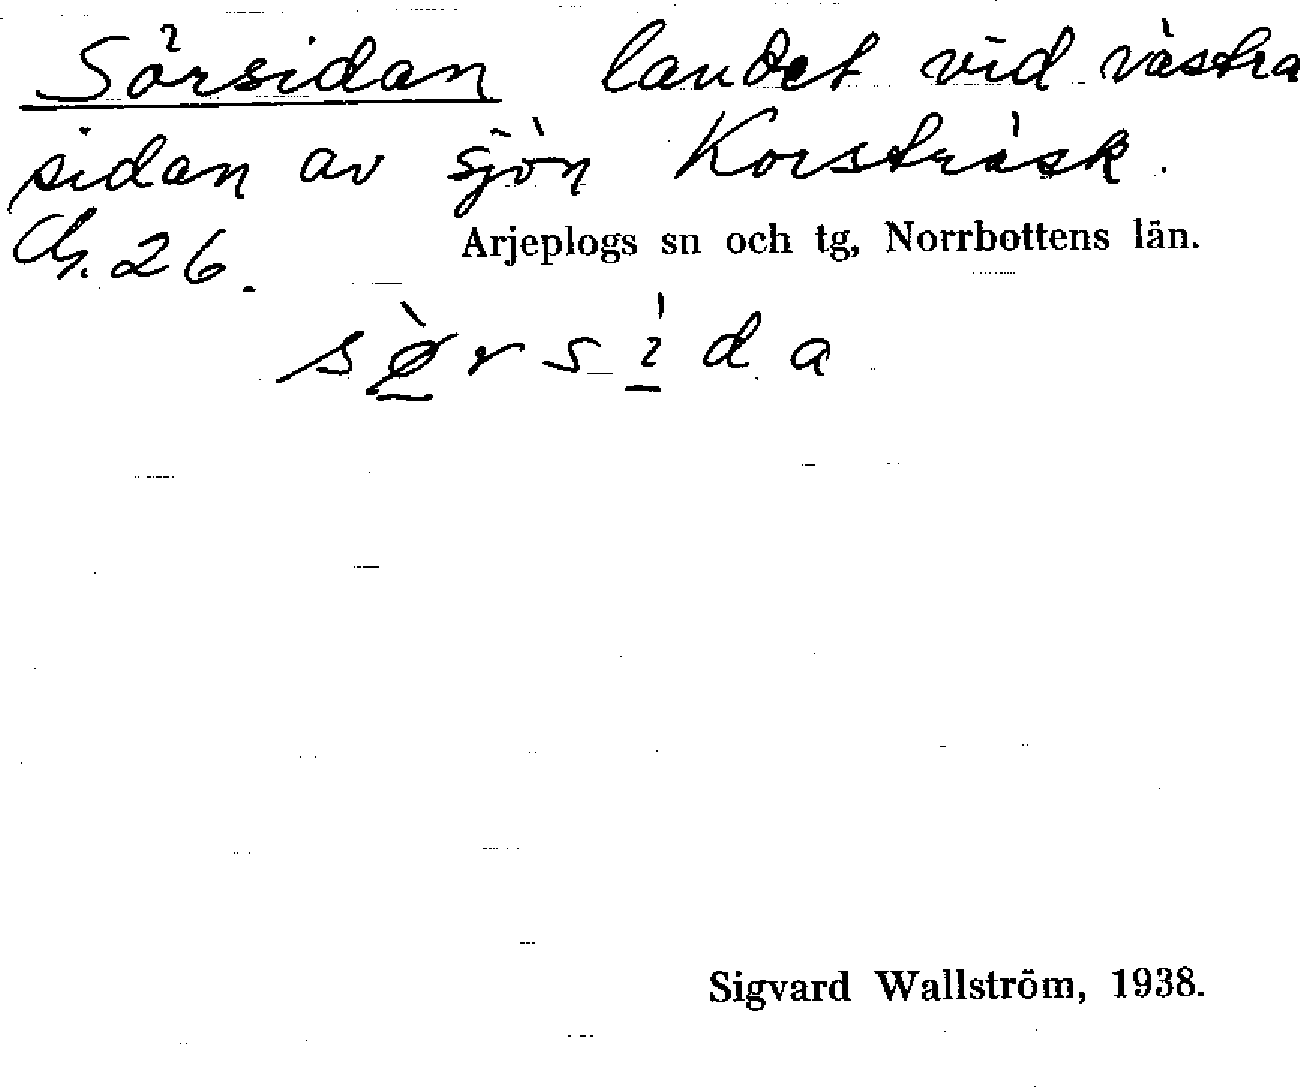 Sörsidan landet vid västra
sidan av sjön Korsträsk.
26. Arjeplogs sn och tg, Norrbottens län.
Sigvard Wallström, 1938.